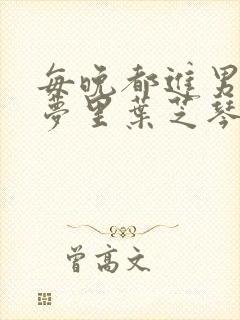 每晚都进男
梦里叶芝琴
曾高文